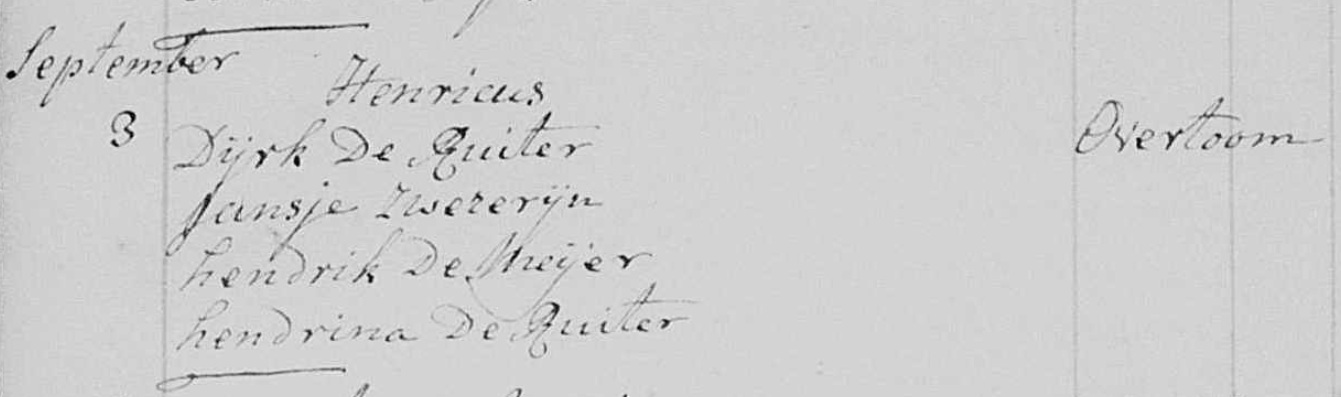 September
Henricus
3 Dijrk De Ruiter Overtoom
Jansje Zwezerijn
hendrik De Meijer
hendrina De Ruiter